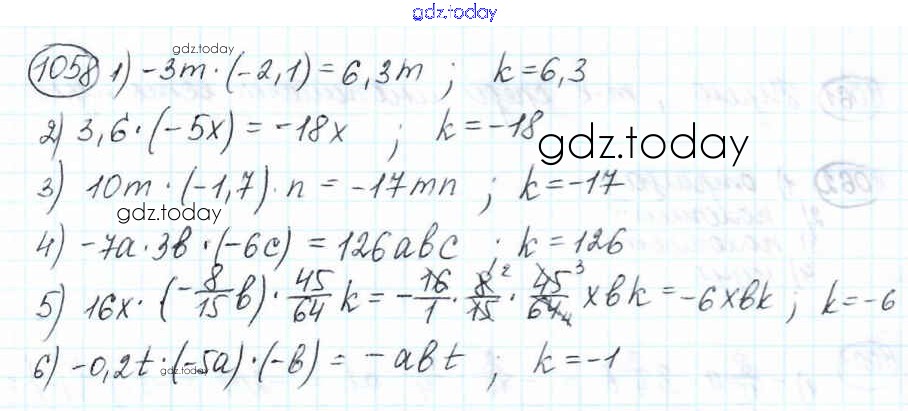 gdz.today
gdz.today
1058 1) -3m·(-2,1) = 6,3m ; k=6,3
2) 3,6·(-5x) = -18x ; k=-18
gdz.today
3) 10m·(-1,7)·n = -17mn ; k=-17
gdz.today
4) -7a·3b·(-6c) = 126abc ; k=126
5) 16x·(-8/15 b)·45/64 k = -16/1 · 8/15 · 45/64 xbk = -6xbk ; k=-6
6) -0,2t·(-5a)·(-b) = -abt ; k=-1
gdz.today